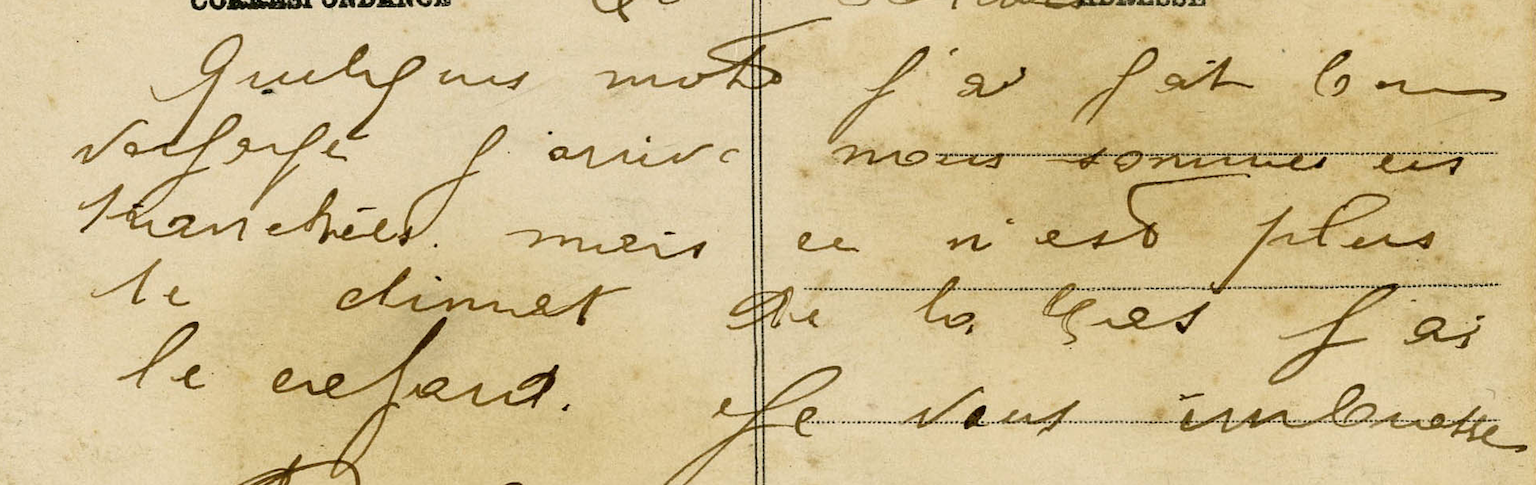 CORRESPONDANCE ADRESSE
Quelques mots j'ai fait bon
voyage j'arrive nous sommes en
tranchées. mais ce n'est plus
le climat de la j'ai
le cafard. Je vous imbrasse